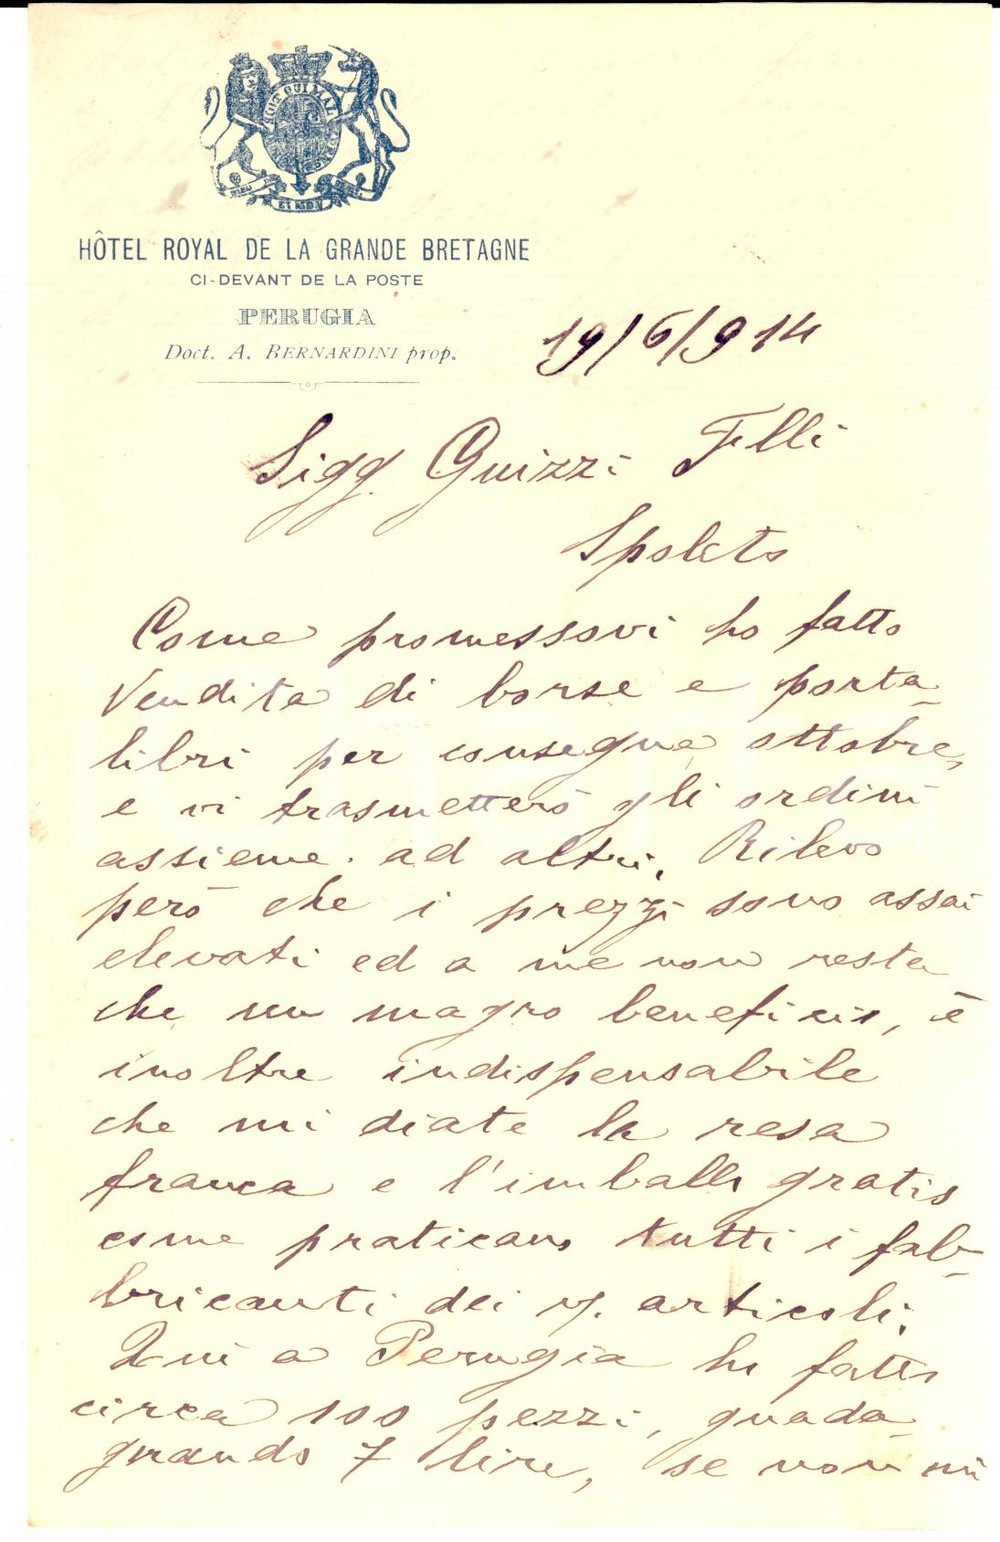 HÔTEL ROYAL DE LA GRANDE BRETAGNE
CI-DEVANT DE LA POSTE
PERUGIA
Doct. A. BERNARDINI prop.
19/6/914
Sigg. Guizzi Flli
Spoleto
Come promessovi ho fatto
vendita di borse e porta-
libri per consegna ottobre,
e vi trasmetterò gli ordini
assieme ad altri. Rilevo
però che i prezzi sono assai
elevati ed a me non resta
che un magro beneficio, è
inoltre indispensabile
che mi diate la resa
franca e l'imballo gratis
come praticano tutti i fab-
bricanti dei v/. articoli.
Qui a Perugia ho fatto
circa 100 pezzi, guada-
gnando 7 lire, se non mi